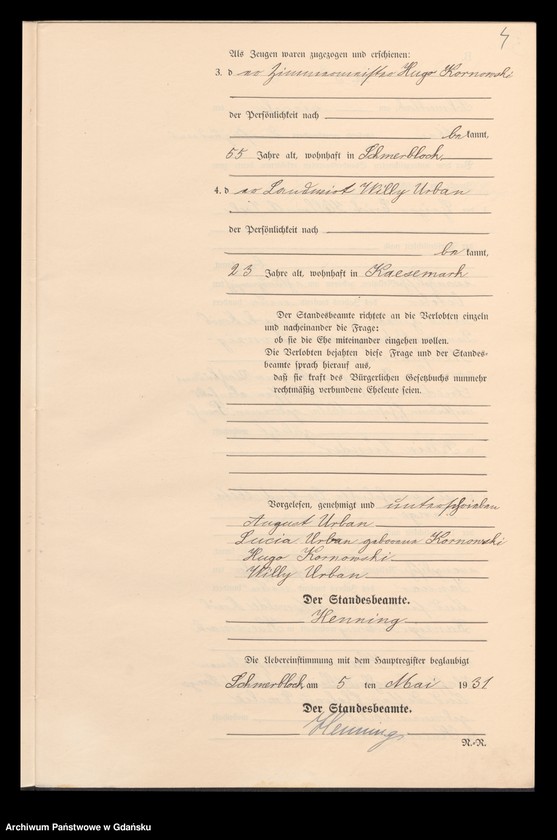 4
Als Zeugen waren zugezogen und erschienen:
3. d er Zimmermeister Hugo Kornowski
der Persönlichkeit nach
be kannt,
55 Jahre alt, wohnhaft in Schmerblock
4. d er Landwirt Willy Urban
der Persönlichkeit nach
be kannt,
23 Jahre alt, wohnhaft in Kaesemark
Der Standesbeamte richtete an die Verlobten einzeln
und nacheinander die Frage:
ob sie die Ehe miteinander eingehen wollen.
Die Verlobten bejahten diese Frage und der Standes-
beamte sprach hierauf aus,
daß sie kraft des Bürgerlichen Gesetzbuchs nunmehr
rechtmäßig verbundene Eheleute seien.
Vorgelesen, genehmigt und unterschrieben
August Urban
Lucia Urban geborene Kornowski
Hugo Kornowski
Willy Urban
Der Standesbeamte.
Henning
Die Uebereinstimmung mit dem Hauptregister beglaubigt
Schmerblock am 5 ten Mai 1931
Der Standesbeamte.
Henning
R.-R.
Archiwum Państwowe w Gdańsku